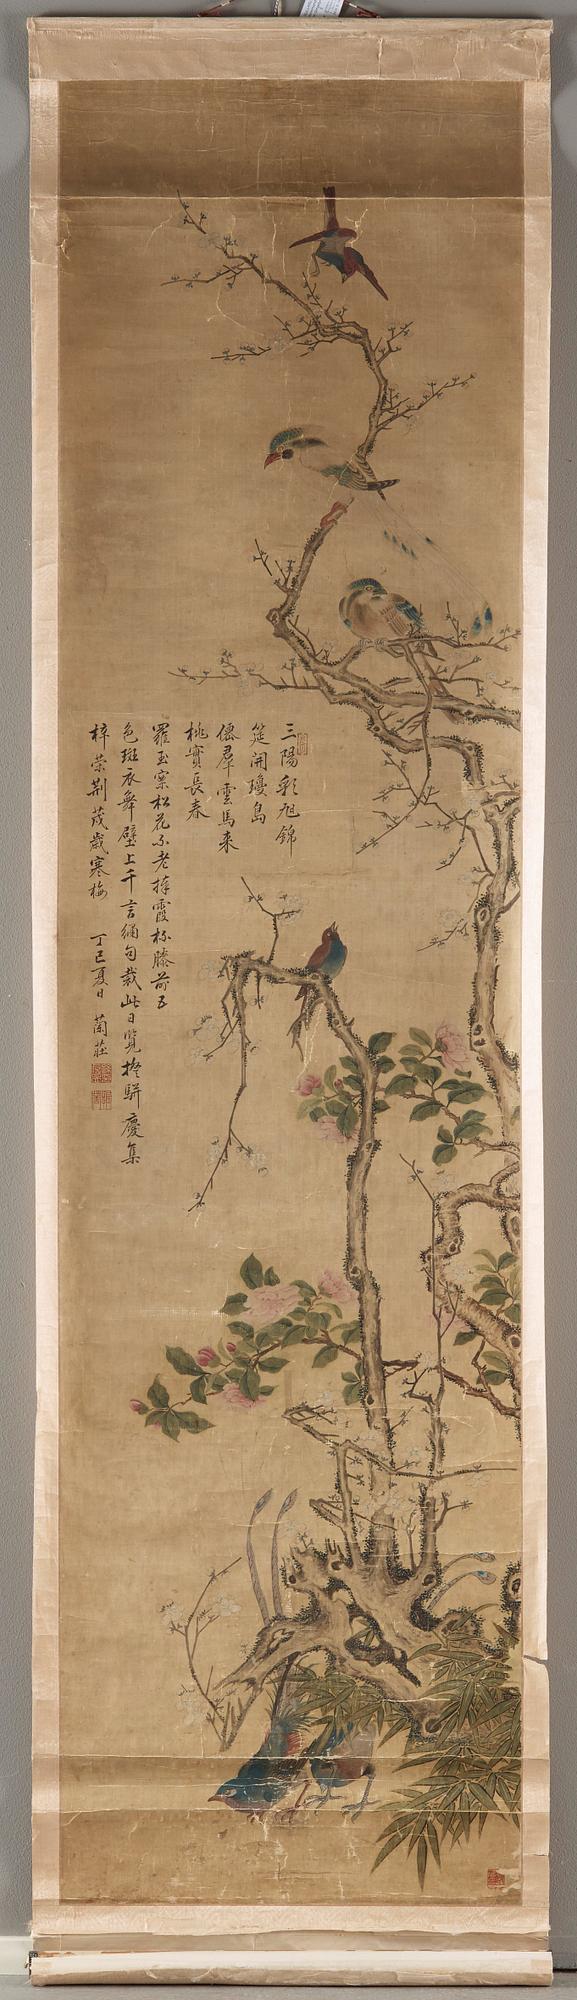 三陽彩旭錦
筵開瓊島
僊羣雲馬來
桃實長春
羅玉寀松花不老擁霞觴膝前五
色斑衣舞壁上千言繡句裁此日覽揆駢慶集
梓榮荆茂歲寒梅
丁巳夏日 蘭莊